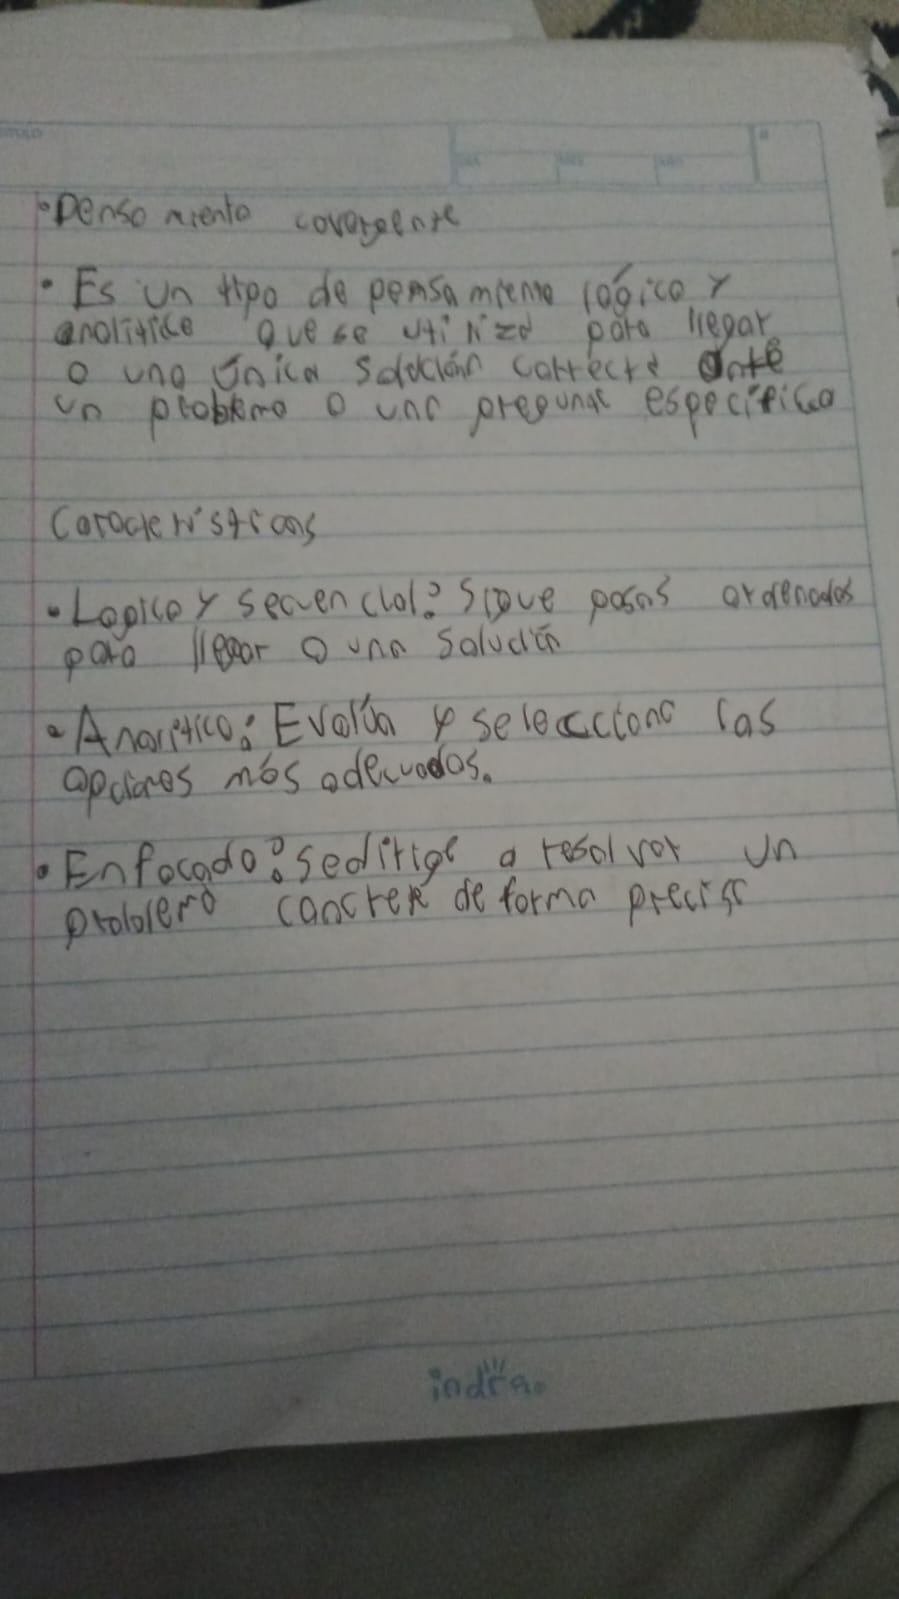 • Pensamiento covergente
• Es un tipo de pensamiento lógico y
analitico que se utiliza para llegar
a una única solución correcta ante
un problema o una pregunta específica
Caracteristicas
• Logico y secuencial: sigue pasos ordenados
para llegar a una solución
• Analítico: Evalúa y selecciona las
opciones más adecuadas.
• Enfocado: se dirige a resolver un
problema concreto de forma precisa
indra